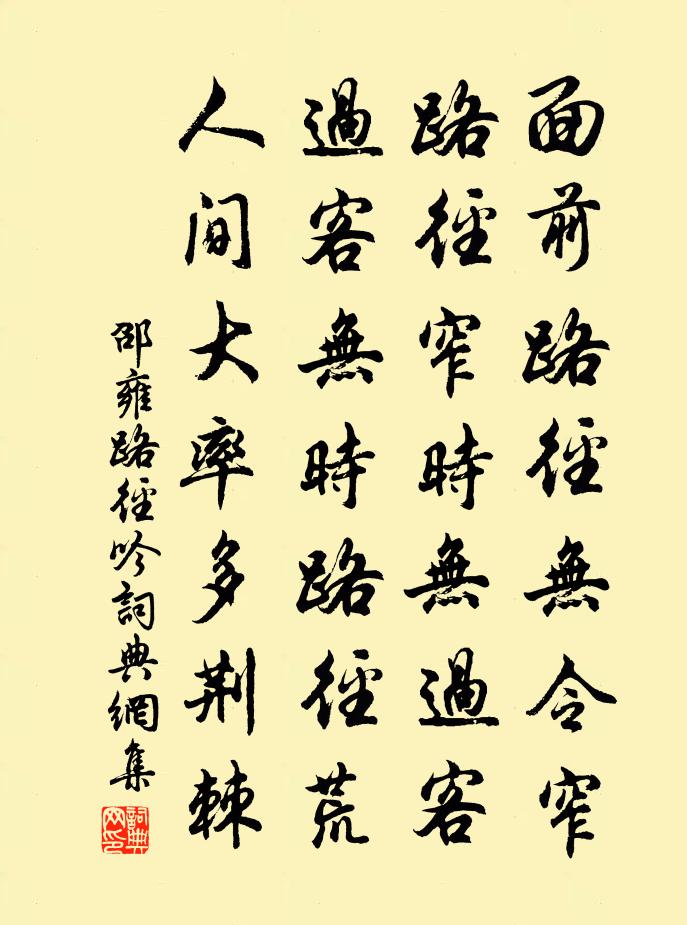 面前路徑無令窄
路徑窄時無過客
過客無時路徑荒
人間大率多荆棘
邵雍路徑吟詞典網集
詞典網印